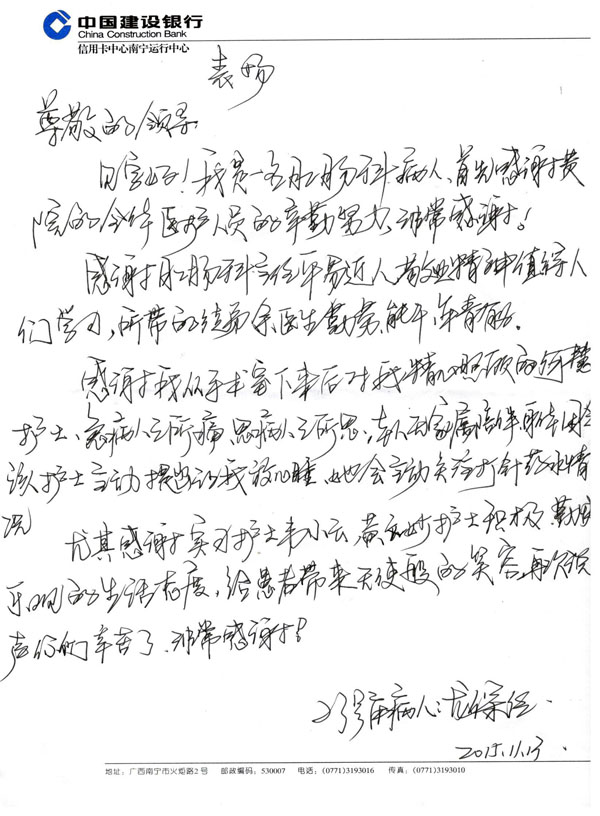 中国建设银行
China Construction Bank
信用卡中心南宁运行中心
表扬
尊敬的领导
您好！我是一名肛肠科病人，首先感谢贵
院的全体医护人员的辛勤努力，非常感谢！
感谢肛肠科主任平易近人敬业精神值得人
们学习，所带的 余医生勤劳能干年青有为。
感谢我从手术室下来后对我精心照顾的何
护士、急病人之所痛思病人之所思，
该护士主动提出让我放心睡，她会主动关注打针药水情
况
尤其感谢实习护士韦小云，黄 妙护士积极勤
的生活态度，给患者带来天使般的笑容，再次说
声你们辛苦了，非常感谢！
病人：尤
2015.11.13.
地址：广西南宁市火炬路2号 邮政编码：530007 电话：(0771)3193016 传真：(0771)3193010